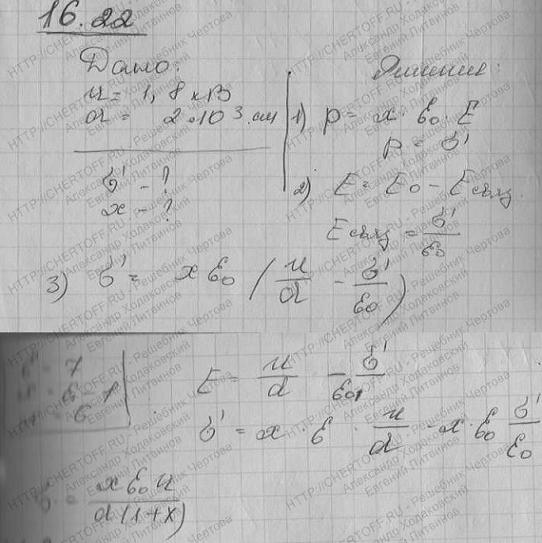 16.22
Дано:
u = 1,8 кВ
d = 2·10³ см
σ' - ?
x - ?
Решение:
1) p = x · ε₀ · E
p = σ'
2) E = E₀ - Eсвяз
Eсвяз = σ'/ε₀
3) σ' = xε₀ (u/d - σ'/ε₀)
ε = 7
E = u/d - σ'/ε₀
σ' = x · ε · u/d - x · ε₀ σ'/ε₀
xε₀u/d(1+x)
HTTP://CHERTOFF.RU - Решебник Чертова
Александр Холаковский
Евгений Литвинов